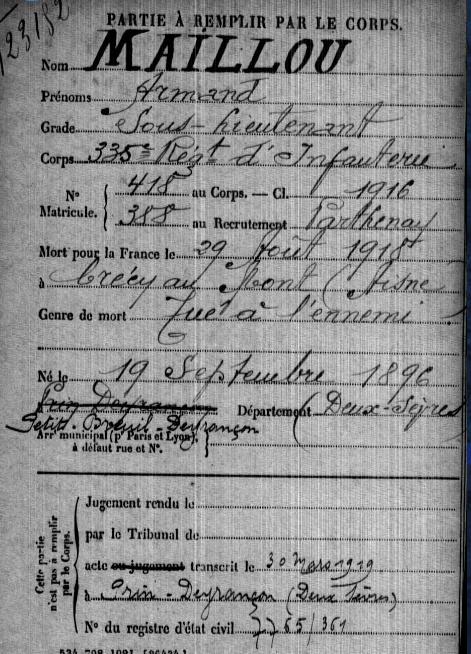 123182
PARTIE À REMPLIR PAR LE CORPS.
Nom MAILLOU
Prénoms Armand
Grade Sous-Lieutenant
Corps 335e Régt d'Infanterie
N° 418 au Corps. — Cl. 1916
Matricule. 388 au Recrutement Parthenay
Mort pour la France le 29 Août 1918
à Crécy au Mont (Aisne
Genre de mort Tué à l'ennemi
Né le 19 Septembre 1896
Prin Deyrançon Département (Deux-Sèvres
Petit-Breuil-Deyrançon
Arrt municipal (pr Paris et Lyon),
à défaut rue et N°.
Cette partie
n'est pas à remplir
par le Corps.
Jugement rendu le
par le Tribunal de
acte ou jugement transcrit le 30 Mars 1919
à Prin-Deyrançon (Deux Sèvres)
N° du registre d'état civil 7765/361